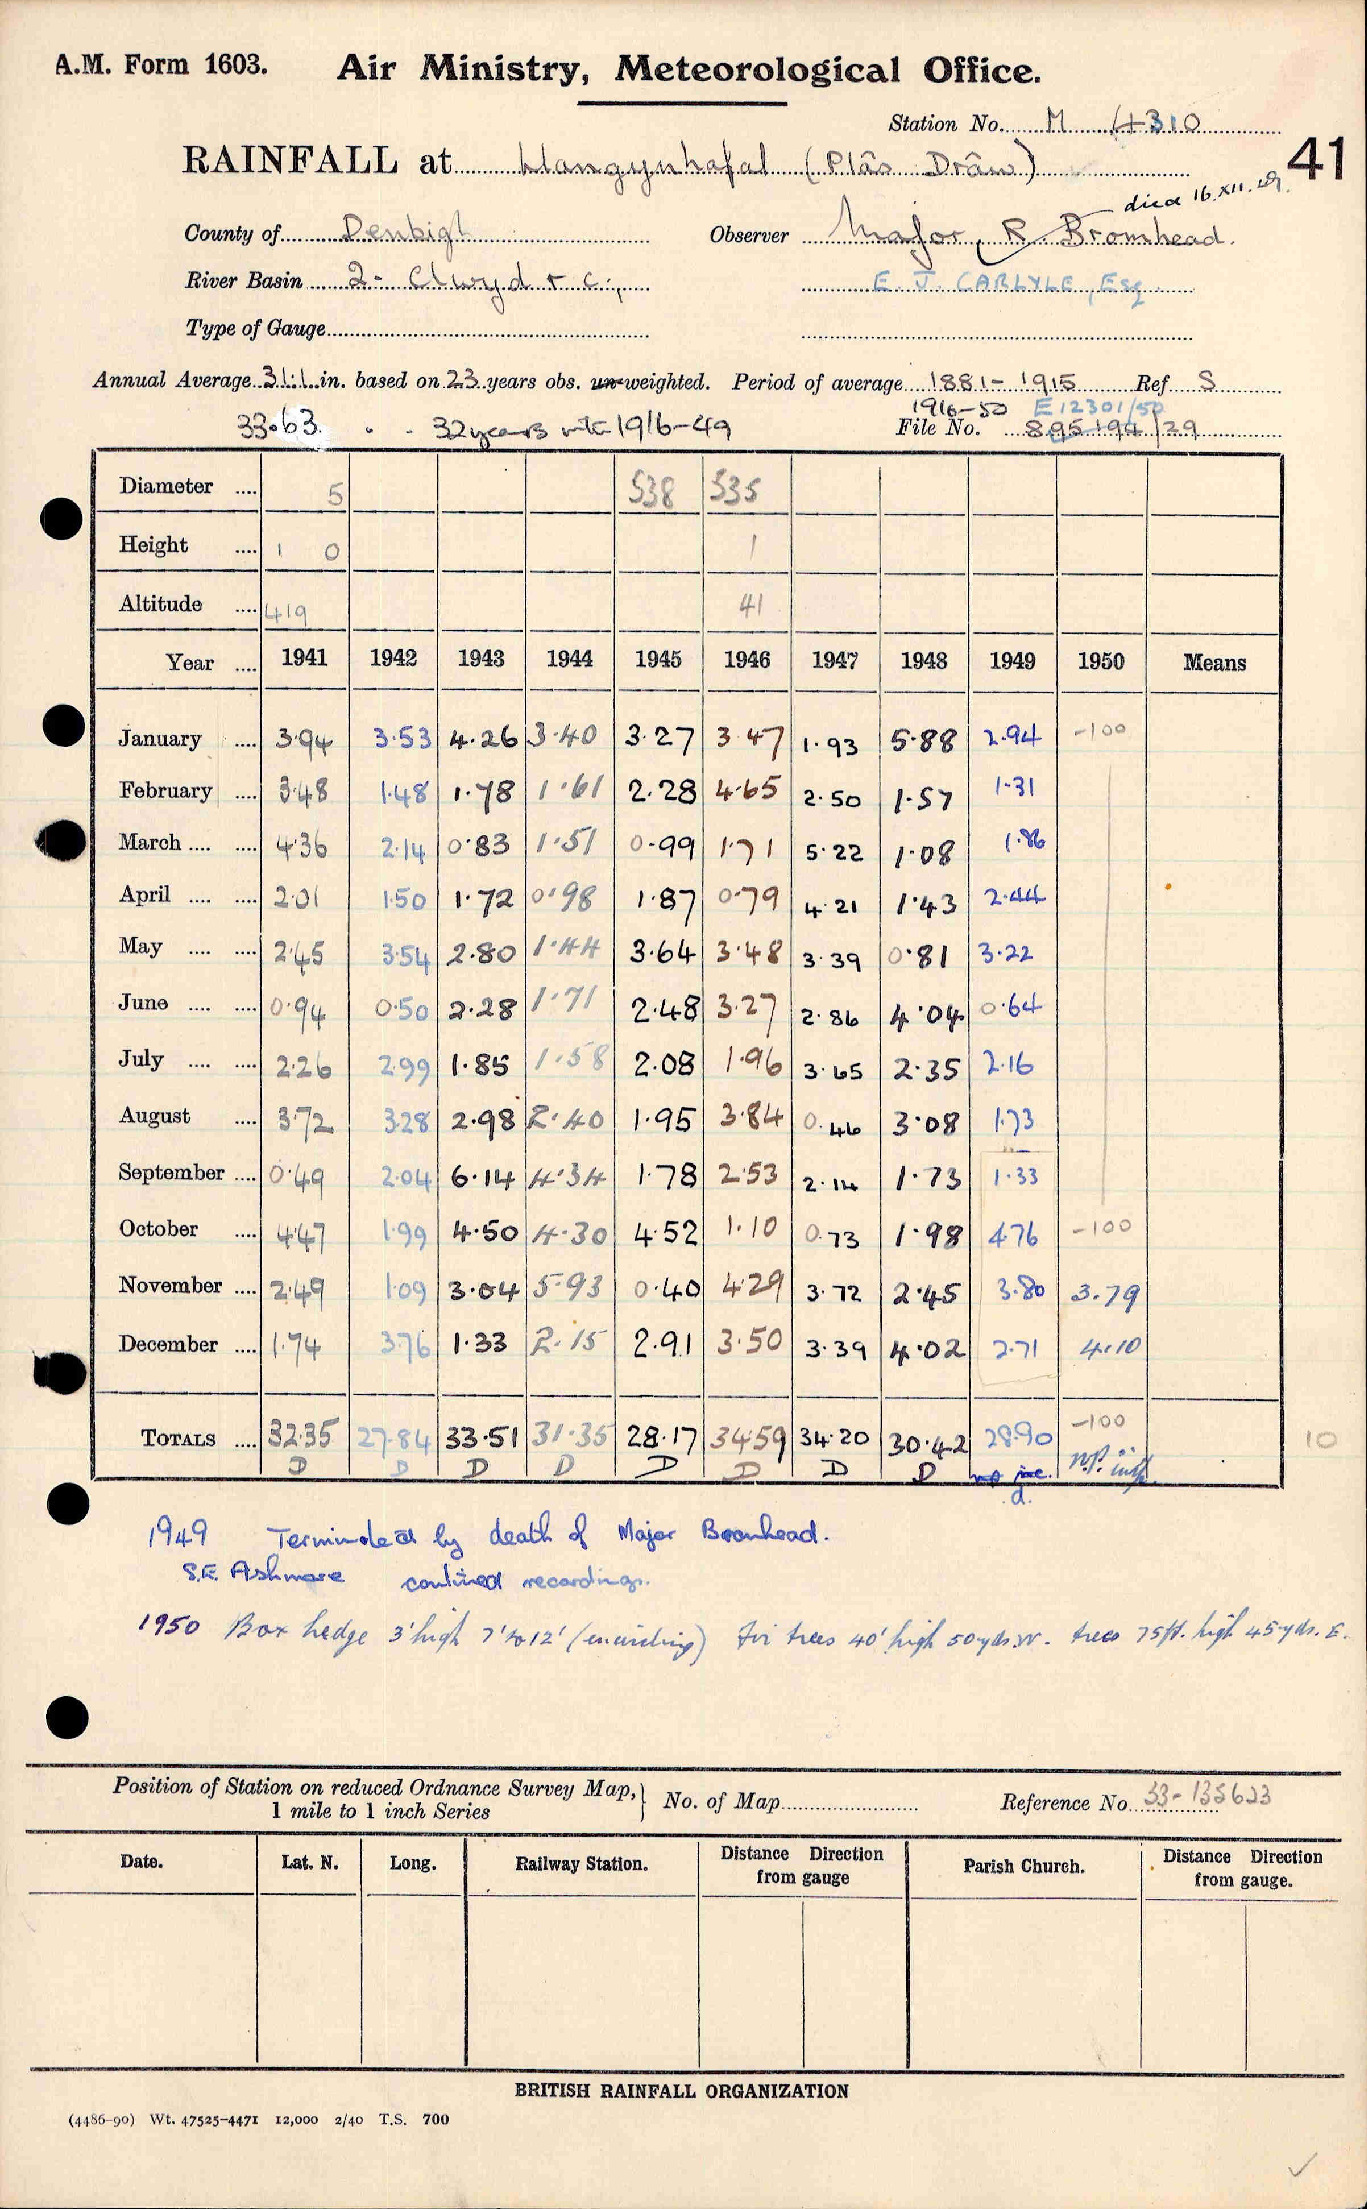 A.M. Form 1603. Air Ministry, Meteorological Office.
Station No. M 4310
41
RAINFALL at Llangynhafal (Plâs Drâw)
died 16.XII.49.
County of Denbigh Observer Major R Bromhead.
River Basin 2- Clwyd + C., E. J. CARLYLE, Esq
Type of Gauge
Annual Average 31.1 in. based on 23 years obs. un-weighted. Period of average 1881-1915 Ref S
1916-50 E12301/50
33.63 . . 32 years 1916-49 File No. 895194/29
Diameter .... 5 538 535
Height .... 1 0 1
Altitude .... 419 41
Year .... 1941 1942 1943 1944 1945 1946 1947 1948 1949 1950 Means
January .... 3.94 3.53 4.26 3.40 3.27 3.47 1.93 5.88 2.94 -100
February .... 3.48 1.48 1.78 1.61 2.28 4.65 2.50 1.57 1.31
March .... .... 4.36 2.14 0.83 1.51 0.99 1.71 5.22 1.08 1.86
April .... .... 2.01 1.50 1.72 0.98 1.87 0.79 4.21 1.43 2.44
May .... .... 2.45 3.54 2.80 1.44 3.64 3.48 3.39 0.81 3.22
June .... .... 0.94 0.50 2.28 1.71 2.48 3.27 2.86 4.04 0.64
July .... .... 2.26 2.99 1.85 1.58 2.08 1.96 3.65 2.35 2.16
August .... 3.72 3.28 2.98 2.40 1.95 3.84 0.46 3.08 1.73
September .... 0.49 2.04 6.14 4.34 1.78 2.53 2.14 1.73 1.33
October .... 4.47 1.99 4.50 4.30 4.52 1.10 0.73 1.98 4.76 -100
November .... 2.49 1.09 3.04 5.93 0.40 4.29 3.72 2.45 3.80 3.79
December .... 1.74 3.76 1.33 2.15 2.91 3.50 3.39 4.02 2.71 4.10
TOTALS .... 32.35 27.84 33.51 31.35 28.17 34.59 34.20 30.42 28.90 -100 10
D D D D D D D D n.p.
d.
1949 Terminated by death of Major Bromhead.
S.E. Ashmore continued recordings.
1950 Box hedge 3' high 7' to 12' (encircling) Fir trees 40' high 50yds. W. trees 75ft. high 45yds. E.
Position of Station on reduced Ordnance Survey Map, 1 mile to 1 inch Series } No. of Map Reference No. 33-135623
Date. Lat. N. Long. Railway Station. Distance Direction from gauge Parish Church. Distance Direction from gauge.
BRITISH RAINFALL ORGANIZATION
(4486-90) Wt. 47525-4471 12,000 2/40 T.S. 700